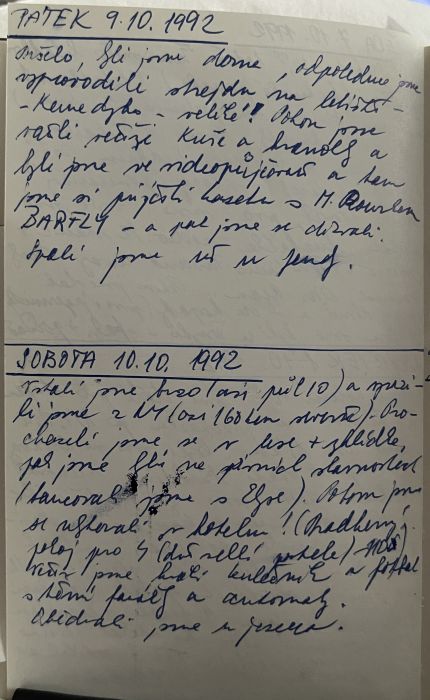 PÁTEK 9.10.1992
pršelo, byli jsme doma, odpoledne jsme
vyprovodili strejdu na letiště -
- Kennedyho - veliké! Potom jsme
večeři kuře a hranolky a
byli jsme ve videopůjčovně a tam
jsme si půjčili kazetu s M. Rourkem
BARFLY - a pak jsme se dívali.
Spali jsme už u Jeny.
SOBOTA 10.10. 1992
Vstali jsme brzo (asi půl 10) a vyrazi-
li jsme z NY (asi 160 km severně). Pro-
cházeli jsme se v lese +
pak jsme byli na pivních slavnostech
(tancovali jsme s Egre). Potom jsme
se ubytovali v hotelu! (Nádherný
pokoj pro 4 (dvě velké postele)
Večer jsme hráli kulečník a fotbal
s těmi a automaty.
Obědvali jsme u jezera.